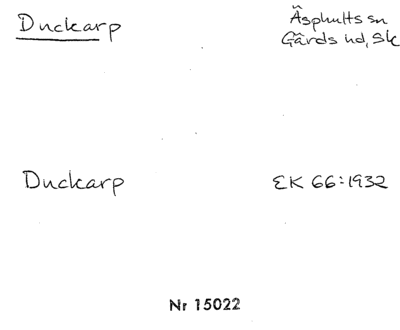 Duckarp
Äsphults sn
Gärds hd, Sk
Duckarp
EK 66:1932
Nr 15022